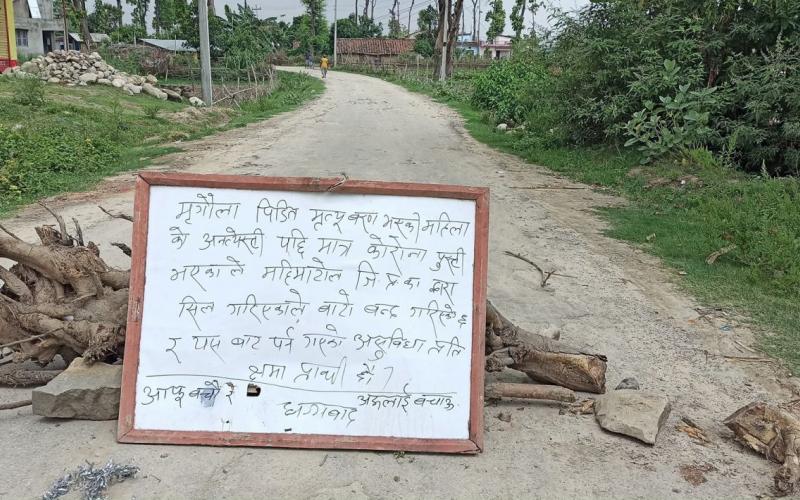 मृगौला पिडित मृत्यू वरण भएकी महिला
को अन्त्येस्टी पछि मात्र कोरोना पुस्टी
भएकाले महिमाटोल जि.प्र.का द्वारा
सिल गरिएकाले बाटो बन्द गरिएको छ
र यस बाट पर्न गएको असुविधा प्रति
क्षमा प्रार्थी छौं ।
आफू बचौं र अरूलाई बचाऊ
धन्यवाद